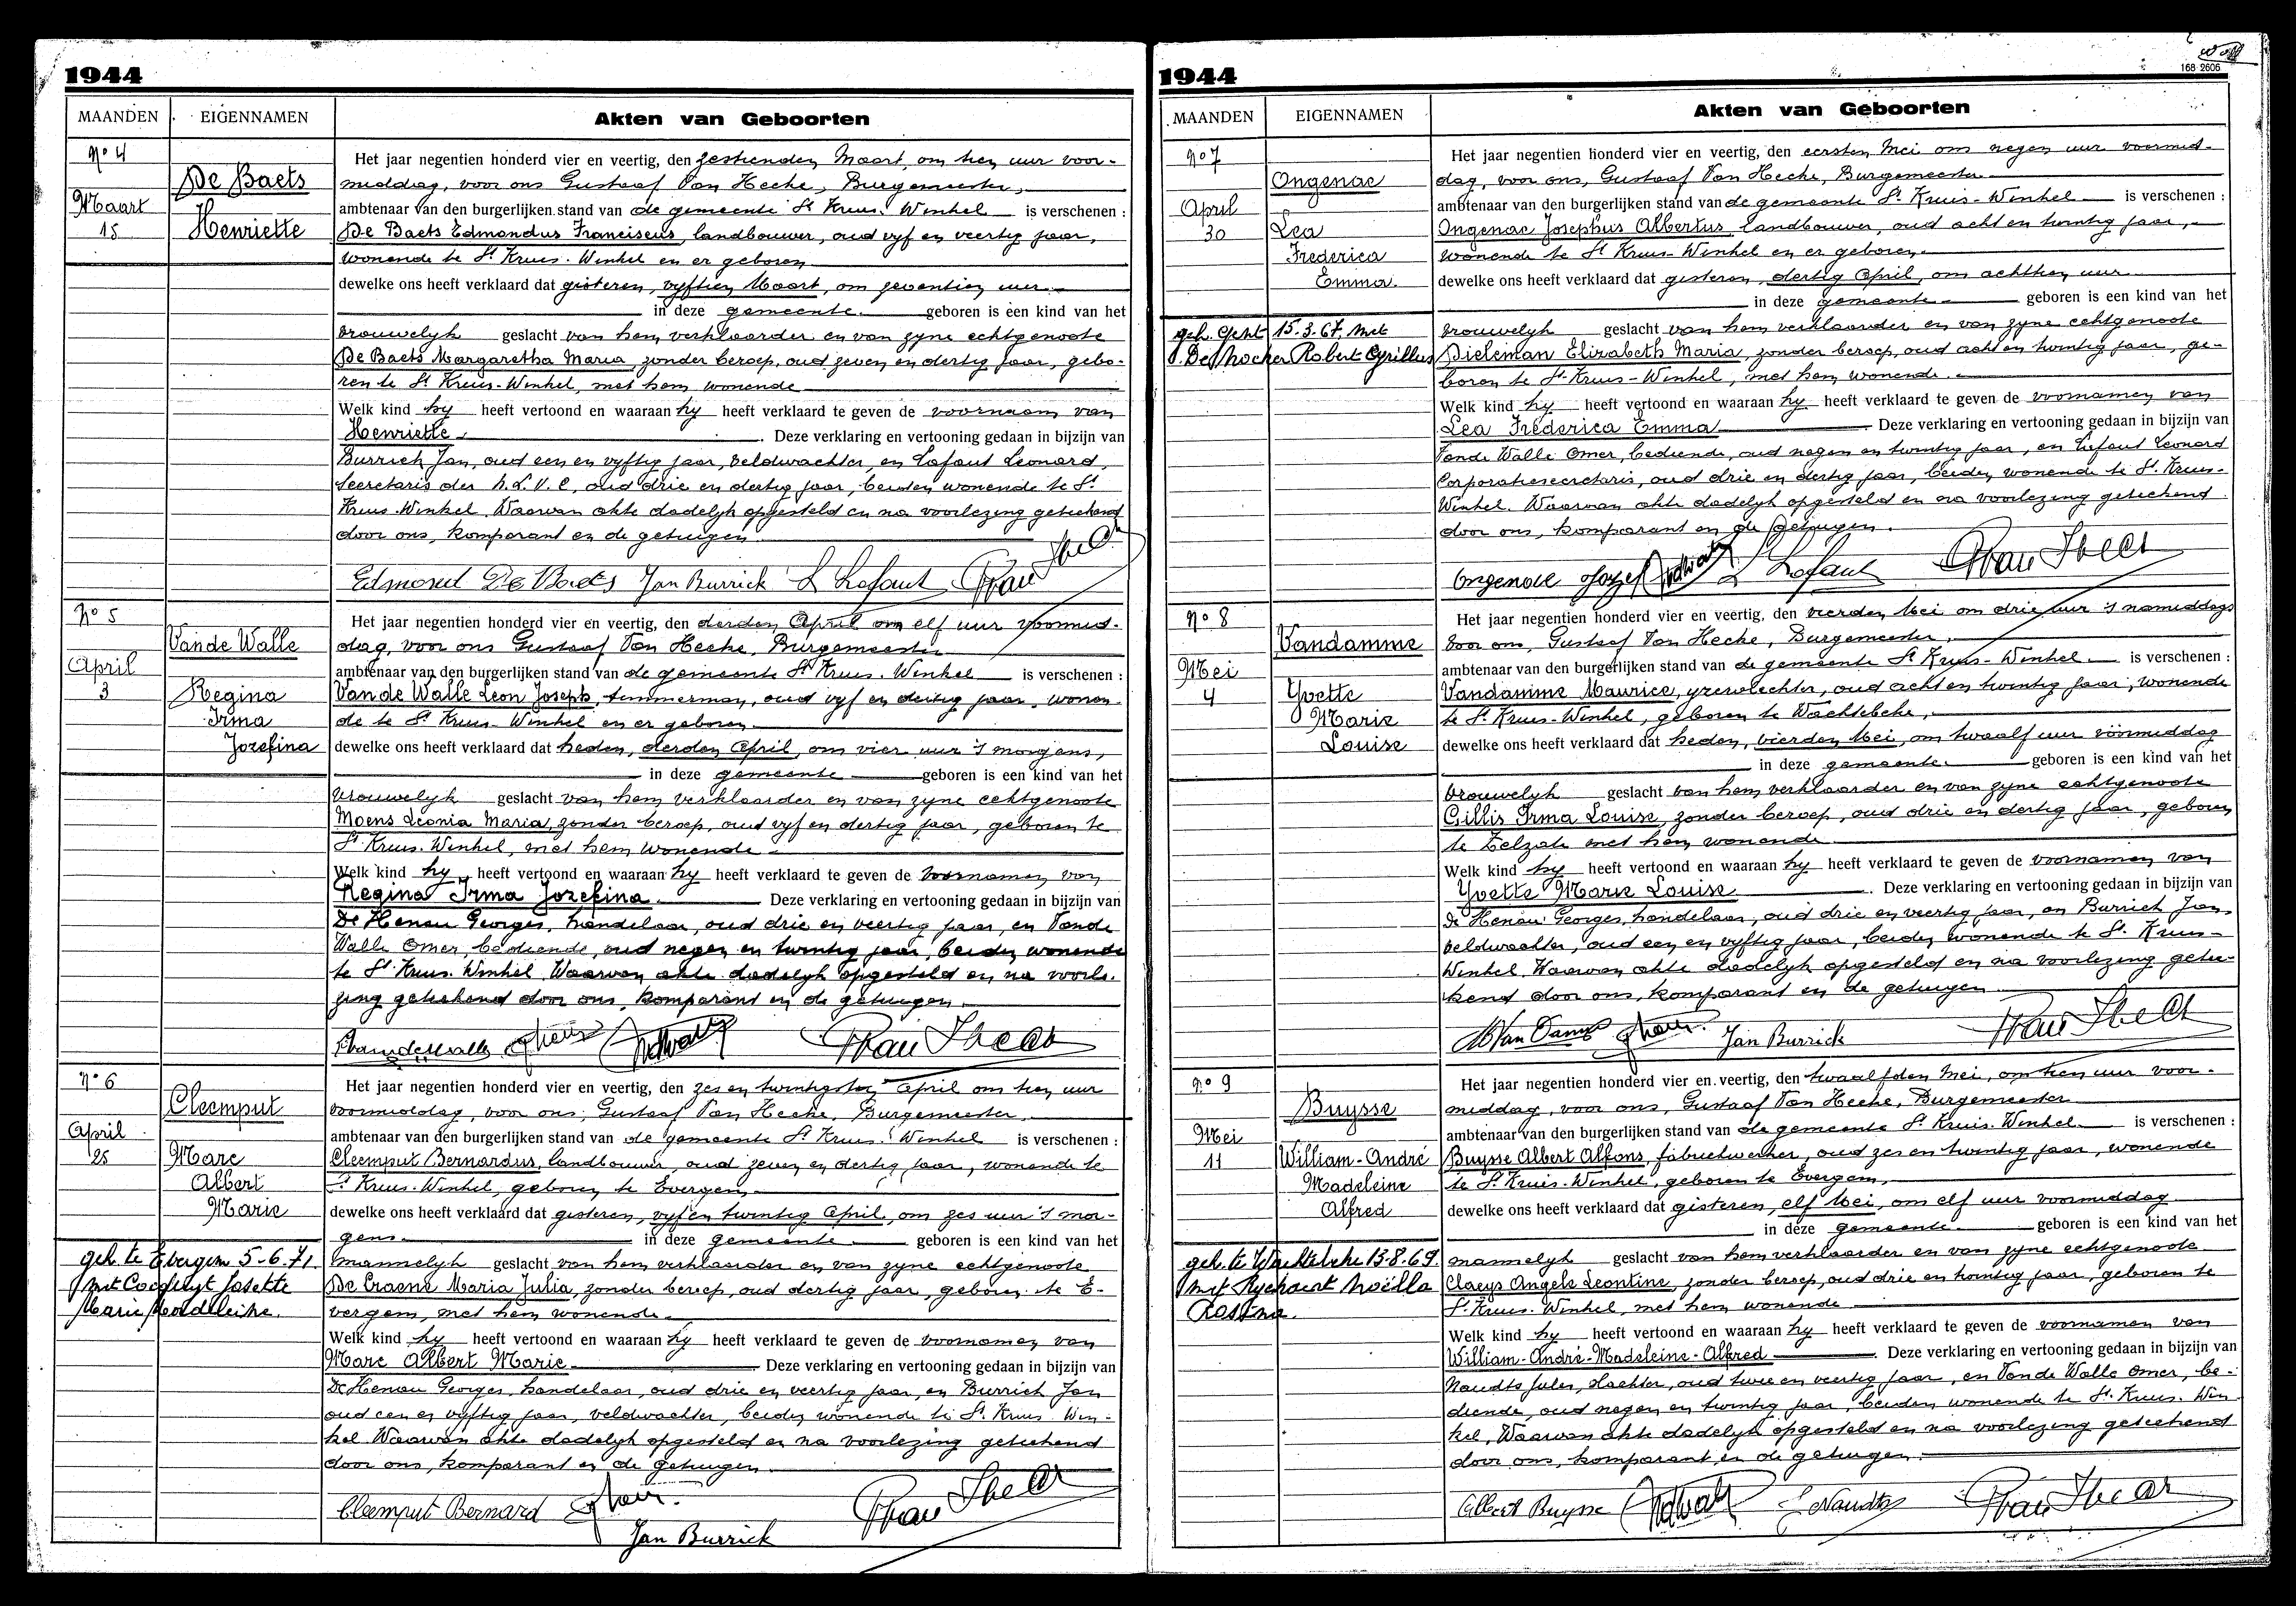 1944
MAANDEN EIGENNAMEN Akten van Geboorten
No 4
De Baets
Maart
15 Henriette
Het jaar negentien honderd vier en veertig, den zestienden Maart, om tien uur voor-
middag, voor ons Gustaaf Van Hecke, Burgemeester,
ambtenaar van den burgerlijken stand van de gemeente St Kruis-Winkel is verschenen :
De Baets Edmondus Franciscus, landbouwer, oud vyf en veertig jaar,
wonende te St Kruis-Winkel en er geboren
dewelke ons heeft verklaard dat gisteren, vyftien Maart, om zeventien uur
in deze gemeente geboren is een kind van het
vrouwelyk geslacht van hem verklaarder en van zyne echtgenoote
De Baets Margaretha Maria, zonder beroep, oud zeven en dertig jaar, gebo-
ren te St Kruis-Winkel, met hem wonende
Welk kind hy heeft vertoond en waaraan hy heeft verklaard te geven de voornaam van
Henriette. Deze verklaring en vertooning gedaan in bijzijn van
Burrick Jan, oud een en vyftig jaar, veldwachter, en Lafaut Leonard,
secretaris der N.L.V.C, oud drie en dertig jaar, beiden wonende te St
Kruis-Winkel. Waarvan akte dadelyk opgesteld en na voorlezing geteekend
door ons, komparant en de getuigen
Edmond De Baets Jan Burrick L Lafaut
No 5
Vande Walle
April
3 Regina
Irma
Jozefina
Het jaar negentien honderd vier en veertig, den derden April om elf uur voormid-
dag, voor ons Gustaaf Van Hecke, Burgemeester
ambtenaar van den burgerlijken stand van de gemeente St Kruis-Winkel is verschenen :
Vande Walle Leon Joseph, timmerman, oud vyf en dertig jaar, wonen-
de te St Kruis-Winkel en er geboren
dewelke ons heeft verklaard dat heden, derden April, om vier uur 's morgens,
in deze gemeente geboren is een kind van het
vrouwelyk geslacht van hem verklaarder en van zyne echtgenoote
Moens Leonia Maria, zonder beroep, oud vyf en dertig jaar, geboren te
St Kruis-Winkel, met hem wonende
Welk kind hy heeft vertoond en waaraan hy heeft verklaard te geven de voornamen van
Regina Irma Jozefina. Deze verklaring en vertooning gedaan in bijzijn van
De Henau Georges, handelaar, oud drie en veertig jaar, en Vande
Walle Omer, bediende, oud negen en twintig jaar, beiden wonende
te St Kruis-Winkel. Waarvan akte dadelyk opgesteld en na voorle-
zing geteekend door ons, komparant en de getuigen.
No 6
Cleemput
April
25 Marc
Albert
Marie
geh. te Evergem 5-6-71
met Cocquyt Josette
Marie Madeleine.
Het jaar negentien honderd vier en veertig, den zes en twintigsten April om tien uur
voormiddag, voor ons, Gustaaf Van Hecke, Burgemeester
ambtenaar van den burgerlijken stand van de gemeente St Kruis-Winkel is verschenen :
Cleemput Bernardus, landbouwer, oud zeven en dertig jaar, wonende te
St Kruis-Winkel, geboren te Evergem,
dewelke ons heeft verklaard dat gisteren, vyf en twintig April, om zes uur 's mor-
gens in deze gemeente geboren is een kind van het
mannelyk geslacht van hem verklaarder en van zyne echtgenoote
De Craene Maria Julia, zonder beroep, oud dertig jaar, geboren te E-
vergem, met hem wonende
Welk kind hy heeft vertoond en waaraan hy heeft verklaard te geven de voornamen van
Marc Albert Marie Deze verklaring en vertooning gedaan in bijzijn van
De Henau Georges, handelaar, oud drie en veertig jaar, en Burrick Jan
oud een en vyftig jaar, veldwachter, beiden wonende te St Kruis-Win-
kel. Waarvan akte dadelyk opgesteld en na voorlezing geteekend
door ons, komparant en de getuigen
Cleemput Bernard
Jan Burrick
1944
168 2606
MAANDEN EIGENNAMEN Akten van Geboorten
No 7
Ongenae
April
30 Lea
Frederica
Emma.
geh. Gent 15.3.67, met
De Mocker Robert Cyrillus
Het jaar negentien honderd vier en veertig, den eersten Mei om negen uur voormid-
dag, voor ons, Gustaaf Van Hecke, Burgemeester
ambtenaar van den burgerlijken stand van de gemeente St Kruis-Winkel is verschenen :
Ongenae Josephus Albertus, landbouwer, oud acht en twintig jaar,
wonende te St Kruis-Winkel en er geboren
dewelke ons heeft verklaard dat gisteren, dertig April, om achttien uur
in deze gemeente geboren is een kind van het
vrouwelyk geslacht van hem verklaarder en van zyne echtgenoote
Dieleman Elizabeth Maria, zonder beroep, oud acht en twintig jaar, ge-
boren te St Kruis-Winkel, met hem wonende
Welk kind hy heeft vertoond en waaraan hy heeft verklaard te geven de voornamen van
Lea Frederica Emma Deze verklaring en vertooning gedaan in bijzijn van
Vande Walle Omer, bediende, oud negen en twintig jaar, en Lafaut Leonard
Corporatiesecretaris, oud drie en dertig jaar, beiden wonende te St Kruis-
Winkel. Waarvan akte dadelyk opgesteld en na voorlezing geteekend
door ons, komparant en de getuigen.
Ongenae Jozef L Lafaut
No 8
Vandamme
Mei
4 Yvette
Marie
Louise
Het jaar negentien honderd vier en veertig, den vierden Mei om drie uur 's namiddags
voor ons, Gustaaf Van Hecke, Burgemeester,
ambtenaar van den burgerlijken stand van de gemeente St Kruis-Winkel is verschenen :
Vandamme Maurice, yzervlechter, oud acht en twintig jaar, wonende
te St Kruis-Winkel, geboren te Wachtebeke,
dewelke ons heeft verklaard dat heden, vierden Mei, om twaalf uur voormiddag
in deze gemeente geboren is een kind van het
vrouwelyk geslacht van hem verklaarder en van zyne echtgenoote
Gillis Irma Louise, zonder beroep, oud drie en dertig jaar, geboren
te Zelzate met hem wonende
Welk kind hy heeft vertoond en waaraan hy heeft verklaard te geven de voornamen van
Yvette Marie Louise Deze verklaring en vertooning gedaan in bijzijn van
De Henau Georges, handelaar, oud drie en veertig jaar, en Burrick Jan,
veldwachter, oud een en vyftig jaar, beiden wonende te St Kruis-
Winkel. Waarvan akte dadelyk opgesteld en na voorlezing getee-
kend door ons, komparant en de getuigen
Jan Burrick
No 9
Buysse
Mei
11 William-André
Madeleine
Alfred
geh. te Wachtebeke 13.8.69.
met Ryckaert Noëlla
Het jaar negentien honderd vier en veertig, den twaalfden Mei, om tien uur voor-
middag, voor ons, Gustaaf Van Hecke, Burgemeester
ambtenaar van den burgerlijken stand van de gemeente St Kruis-Winkel is verschenen :
Buysse Albert Alfons, fabriekwerker, oud zes en twintig jaar, wonende
te St Kruis-Winkel, geboren te Evergem,
dewelke ons heeft verklaard dat gisteren, elf Mei, om elf uur voormiddag
in deze gemeente geboren is een kind van het
mannelyk geslacht van hem verklaarder en van zyne echtgenoote
Claeys Angele Leontine, zonder beroep, oud drie en twintig jaar, geboren te
St Kruis-Winkel, met hem wonende
Welk kind hy heeft vertoond en waaraan hy heeft verklaard te geven de voornamen van
William-André-Madeleine-Alfred Deze verklaring en vertooning gedaan in bijzijn van
Naudts Jules, slachter, oud twee en veertig jaar, en Vande Walle Omer, be-
diende, oud negen en twintig jaar, beiden wonende te St Kruis-Win-
kel, Waarvan akte dadelyk opgesteld en na voorlezing geteekend
door ons, komparant en de getuigen
Albert Buysse J Naudts